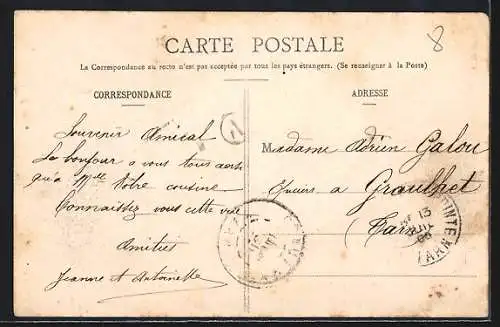 8
CARTE POSTALE
La Correspondance au recto n'est pas acceptée par tous les pays étrangers. (Se renseigner à la Poste)
CORRESPONDANCE
Souvenir Amical
Le bonjour a vous tous aussi
qu'a Melle Votre cousine
Connaissez vous cette vue
Amitiés
Jeanne et Antoinette
ADRESSE
Madame Adrien Galou
a Graulhet
Tarn
13
TARN